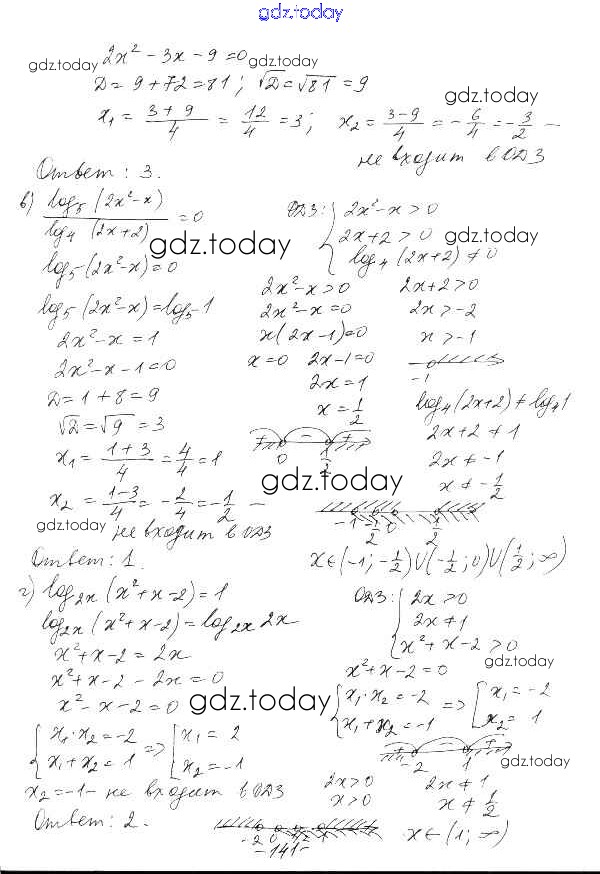 gdz.today
2x² - 3x - 9 = 0
gdz.today gdz.today
D = 9 + 72 = 81; √D = √81 = 9
gdz.today
x₁ = (3+9)/4 = 12/4 = 3; x₂ = (3-9)/4 = -6/4 = -3/2 -
не входит в ОДЗ
Ответ: 3.
в) log₅(2x²-x) / log₄(2x+2) = 0
ОДЗ: { 2x²-x > 0
2x+2 > 0
log₄(2x+2) ≠ 0
gdz.today gdz.today
log₅(2x²-x) = 0
log₅(2x²-x) = log₅1
2x²-x = 1
2x²-x-1 = 0
D = 1+8 = 9
√D = √9 = 3
x₁ = (1+3)/4 = 4/4 = 1
x₂ = (1-3)/4 = -2/4 = -1/2 -
gdz.today
не входит в ОДЗ
Ответ: 1.
2x²-x > 0
2x²-x = 0
x(2x-1) = 0
x = 0 2x-1 = 0
2x = 1
x = 1/2
+ - +
0 1/2
2x+2 > 0
2x > -2
x > -1
-1
log₄(2x+2) ≠ log₄1
2x+2 ≠ 1
2x ≠ -1
x ≠ -1/2
gdz.today
-1 -1/2 0 1/2
x ∈ (-1; -1/2) ∪ (-1/2; 0) ∪ (1/2; ∞)
г) log₂ₓ(x²+x-2) = 1
log₂ₓ(x²+x-2) = log₂ₓ 2x
x²+x-2 = 2x
x²+x-2-2x = 0
x²-x-2 = 0
{ x₁·x₂ = -2
x₁+x₂ = 1 => [ x₁ = 2
x₂ = -1
x₂ = -1 - не входит в ОДЗ
Ответ: 2.
ОДЗ: { 2x > 0
2x ≠ 1
x²+x-2 > 0
gdz.today
x²+x-2 = 0
gdz.today
{ x₁·x₂ = -2
x₁+x₂ = -1 => [ x₁ = -2
x₂ = 1
+ - +
-2 1
gdz.today
2x > 0 2x ≠ 1
x > 0 x ≠ 1/2
-2 0 1/2 1
x ∈ (1; ∞)
-141-